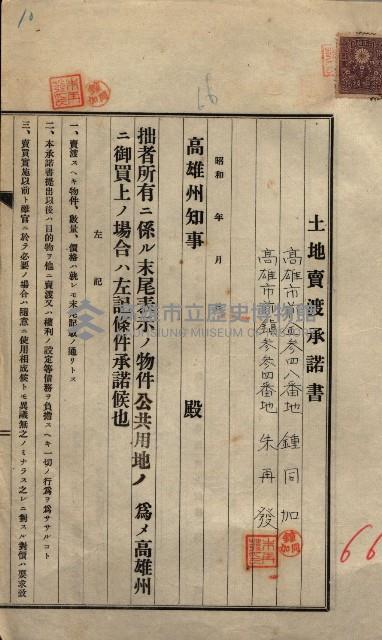 土地賣渡承諾書
高雄市 参四八番地 鍾同加
高雄市 鎮参参四番地 朱再發
昭和 年 月
高雄州知事 殿
拙者所有ニ係ル末尾表示ノ物件公共用地ノ爲メ高雄州
ニ御買上ノ場合ハ左記條件承諾候也
左記
一、賣渡スヘキ物件、數量、價格ハ就レモ末尾記載ノ通リトス
二、本承諾書提出以後ハ目的物ヲ他ニ賣渡又ハ權利ノ設定等債務ヲ負擔スヘキ一切ノ行爲ヲ爲ササルコト
三、賣買實施以前ト雖官ニ於テ必要ノ場合ハ隨意ニ使用相成候トモ異議無之ノミナラス之レニ對スル對價ハ要求致
高雄市立歷史博物館
10
66